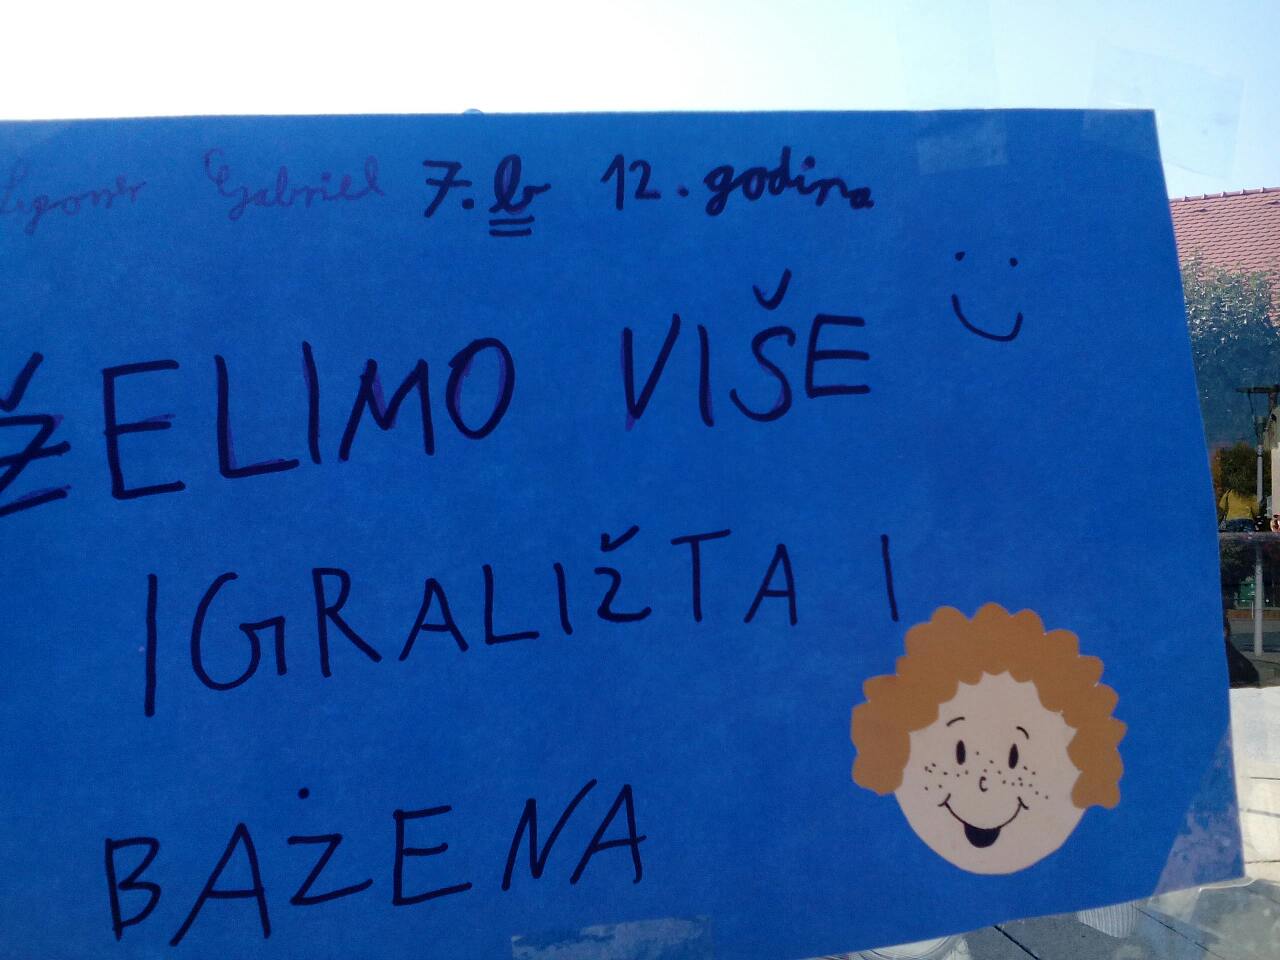 Gabriel 7.b 12. godina
ŽELIMO VIŠE
IGRALIŽTA I
BAŻENA